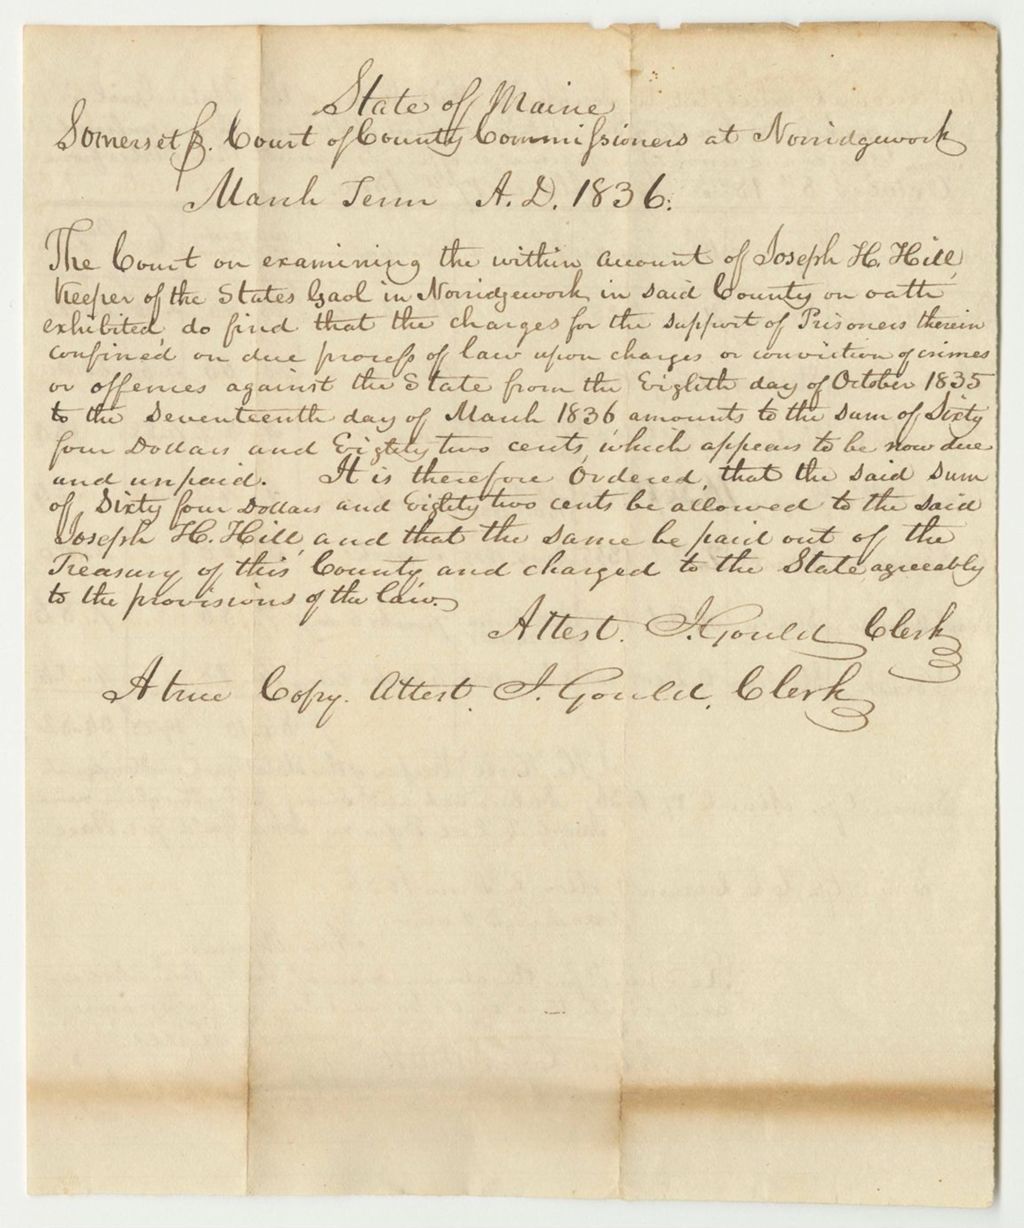 State of Maine
Somerset ss. Court of County Commissioners at Norridgewock
March Term A.D. 1836.
The Court on examining the within account of Joseph H. Hill,
Keeper of the States Gaol in Norridgewock in said County on oath
exhibited do find that the charges for the support of Prisoners therein
confined on due process of law upon charges or conviction of crimes
or offences against the State from the Eighth day of October 1835
to the Seventeenth day of March 1836 amounts to the sum of Sixty
four Dollars and Eighty two cents, which appears to be now due
and unpaid. It is therefore Ordered, that the said sum
of Sixty four Dollars and Eighty two cents be allowed to the said
Joseph H. Hill, and that the same be paid out of the
Treasury of this County and charged to the State agreeably
to the provisions of the law.
Attest. J. Gould Clerk
A true Copy. Attest. J. Gould, Clerk